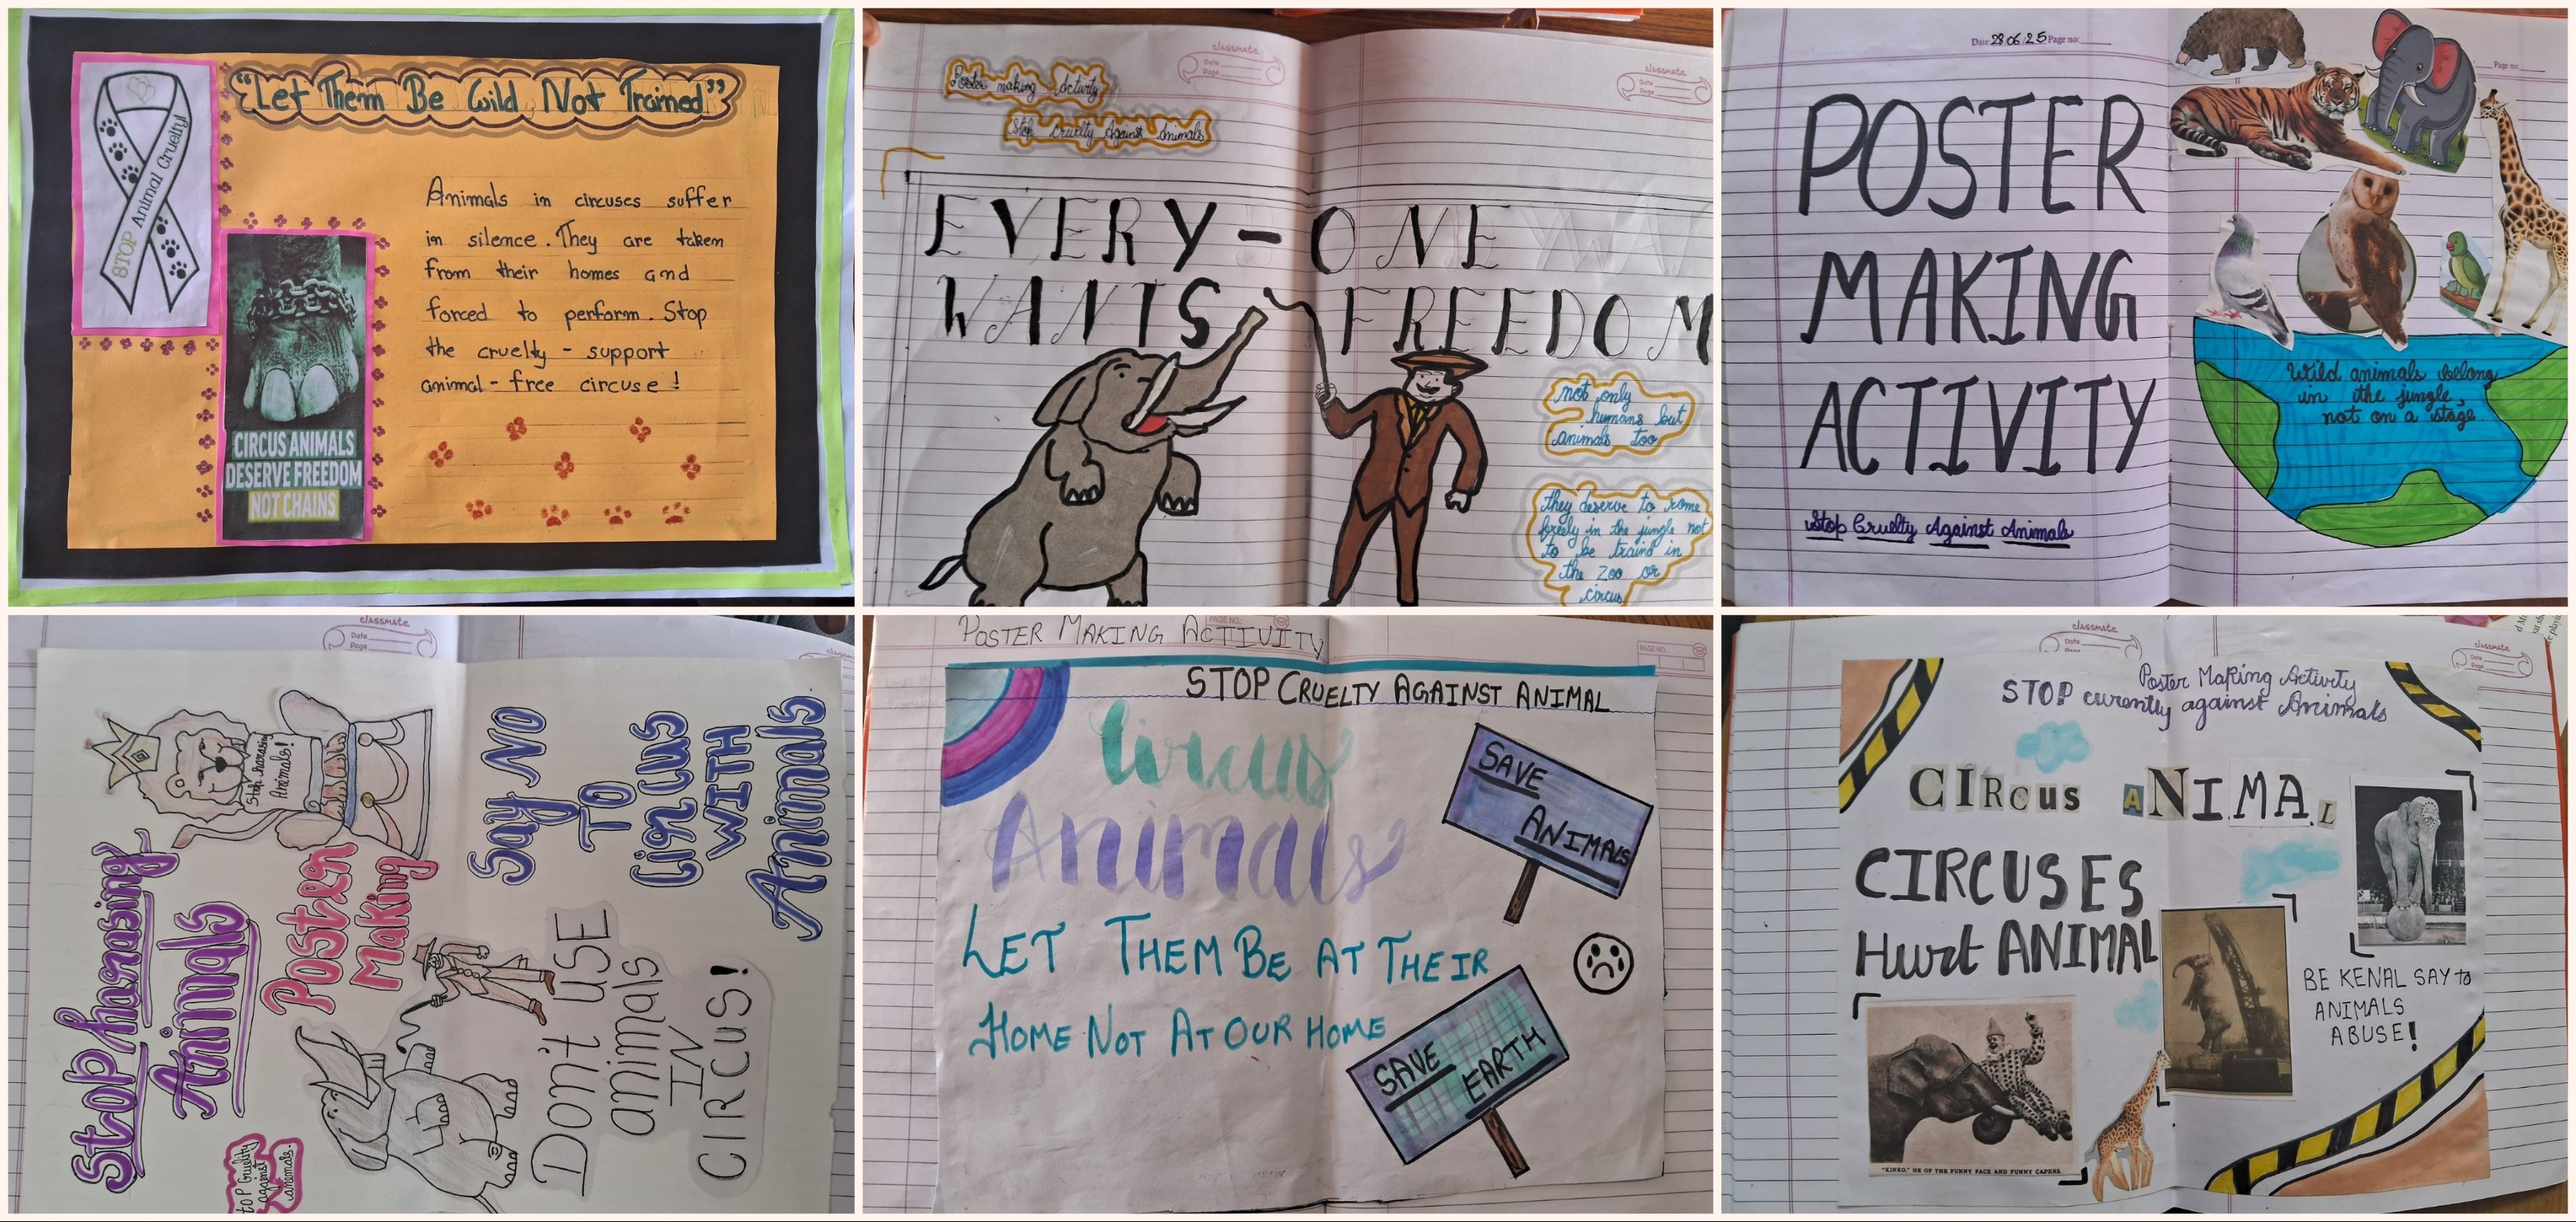 "Let Them Be Wild, Not Trained"
STOP Animal Cruelty!
Animals in circuses suffer
in silence. They are taken
from their homes and
forced to perform. Stop
the cruelty - support
animal-free circuse!
CIRCUS ANIMALS
DESERVE FREEDOM
NOT CHAINS
classmate
Date
Page
classmate
Date
Page
Poster making Activity
Stop Cruelty Against Animals
EVERY-ONE
WANTS FREEDOM
not only
humans but
animals too
they deserve to rome
freely in the jungle not
to be traind in
the zoo or
circus
Date 28.06.25 Page no:
Page no:
POSTER
MAKING
ACTIVITY
Stop Cruelty Against Animals
Wild animals belong
in the jungle,
not on a stage
classmate
Date
Page
Stop harasing
Animals
Poster
Making
Stop harasing
Animals!
Say No
To
Circus
WITH
Animals
Don't USE
animals
IN
CIRCUS!
toP Cruelity
against
anemals.
POSTER MAKING ACTIVITY
PAGE NO.:
PAGE NO.
STOP CRUELTY AGAINST ANIMAL
Circus
Animals
LET THEM BE AT THEIR
HOME NOT AT OUR HOME
SAVE
ANIMALS
SAVE
EARTH
classmate
Date
classmate
Date
Page
Poster Making Activity
STOP curently against Animals
CIRcus ANIMAL
CIRCUSES
Hurt ANIMAL
BE KENAL SAY to
ANIMALS
ABUSE!
"KINKO," HE OF THE FUNNY FACE AND FUNNY CAPERS